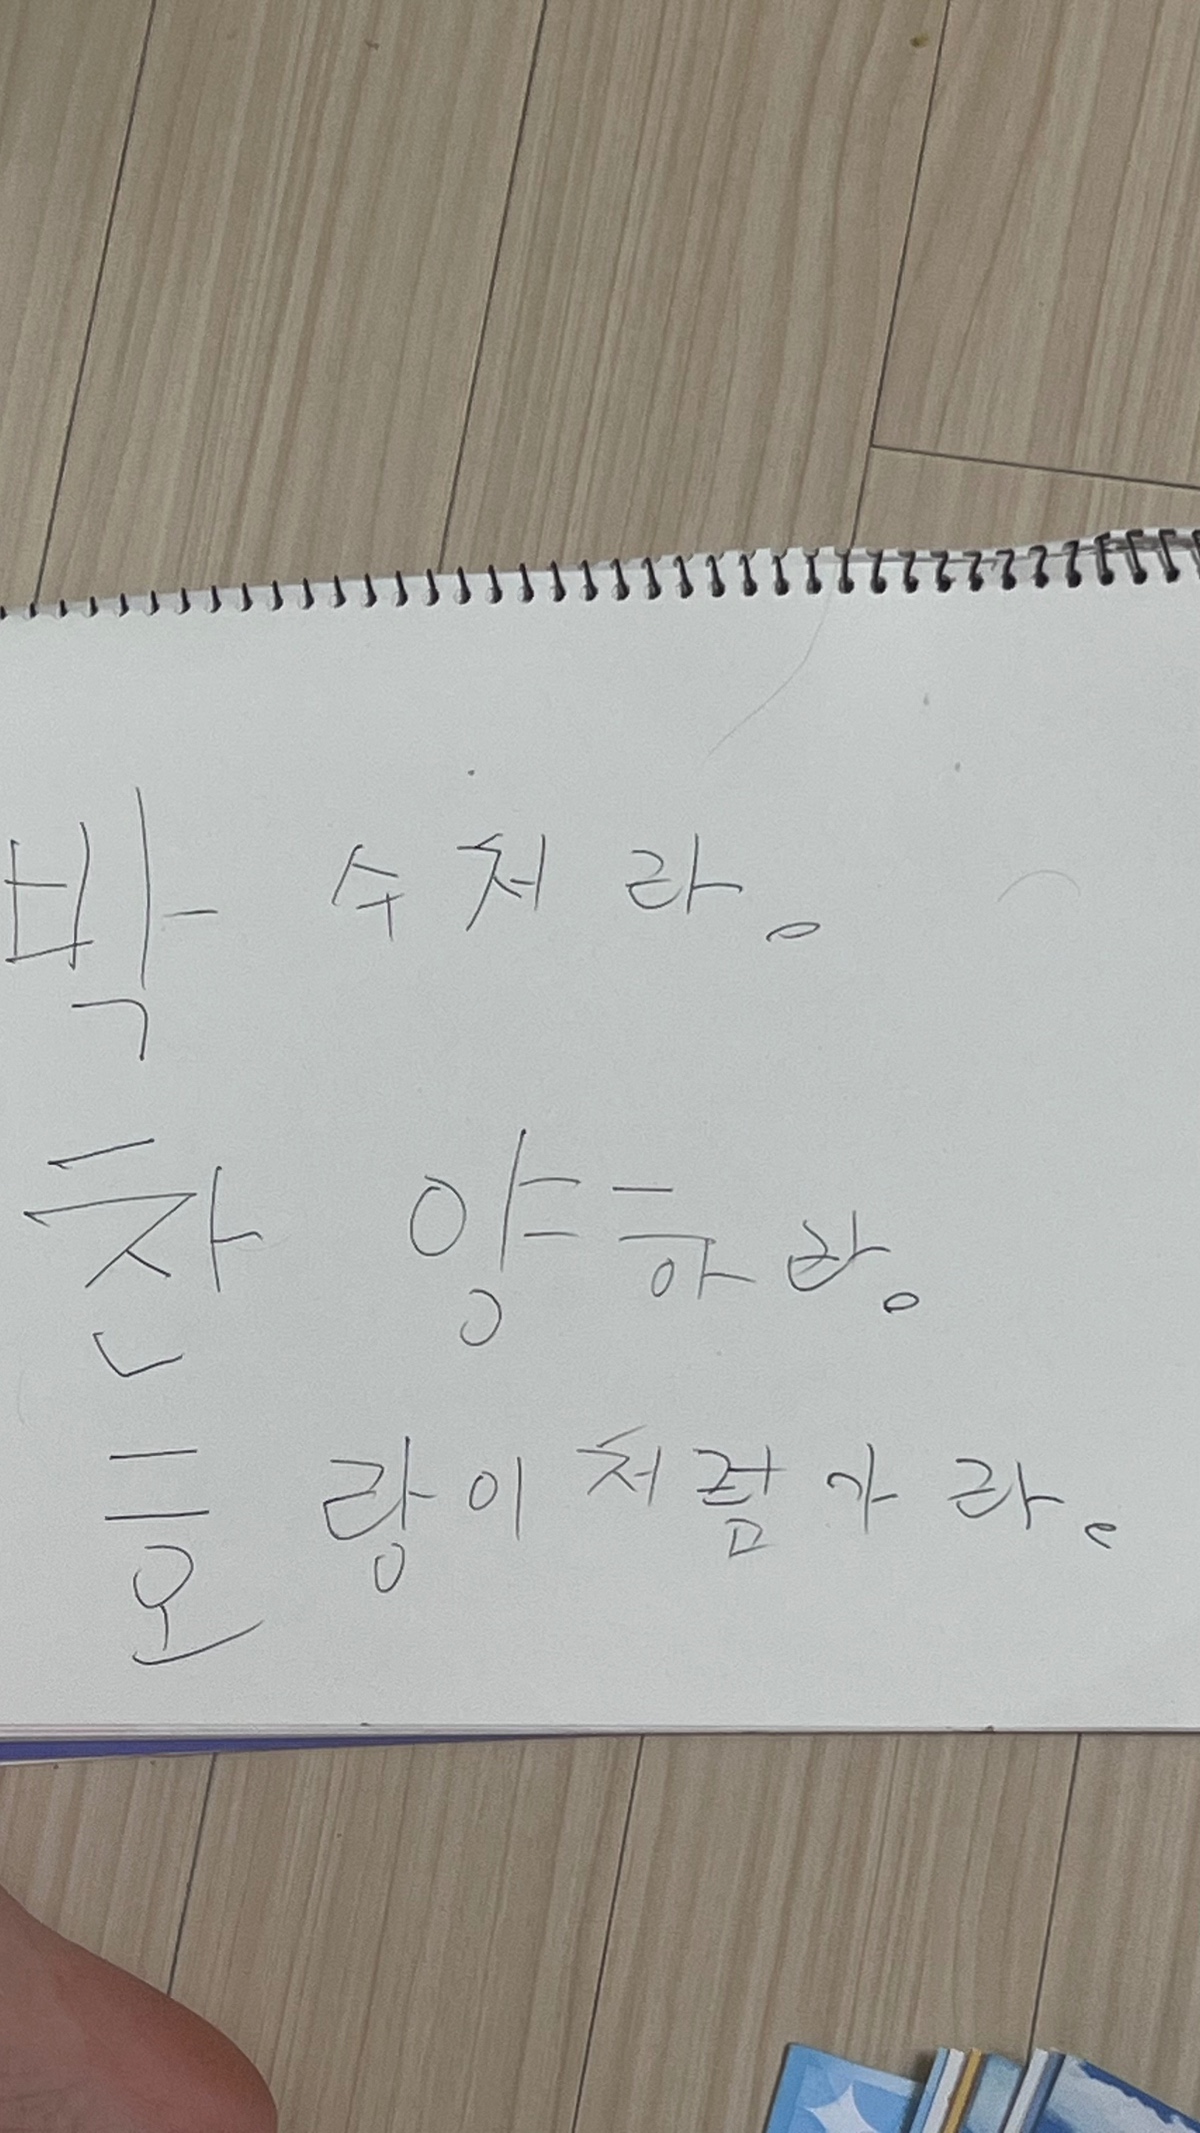 박수쳐라.
찬양하라.
호랑이처럼가라.